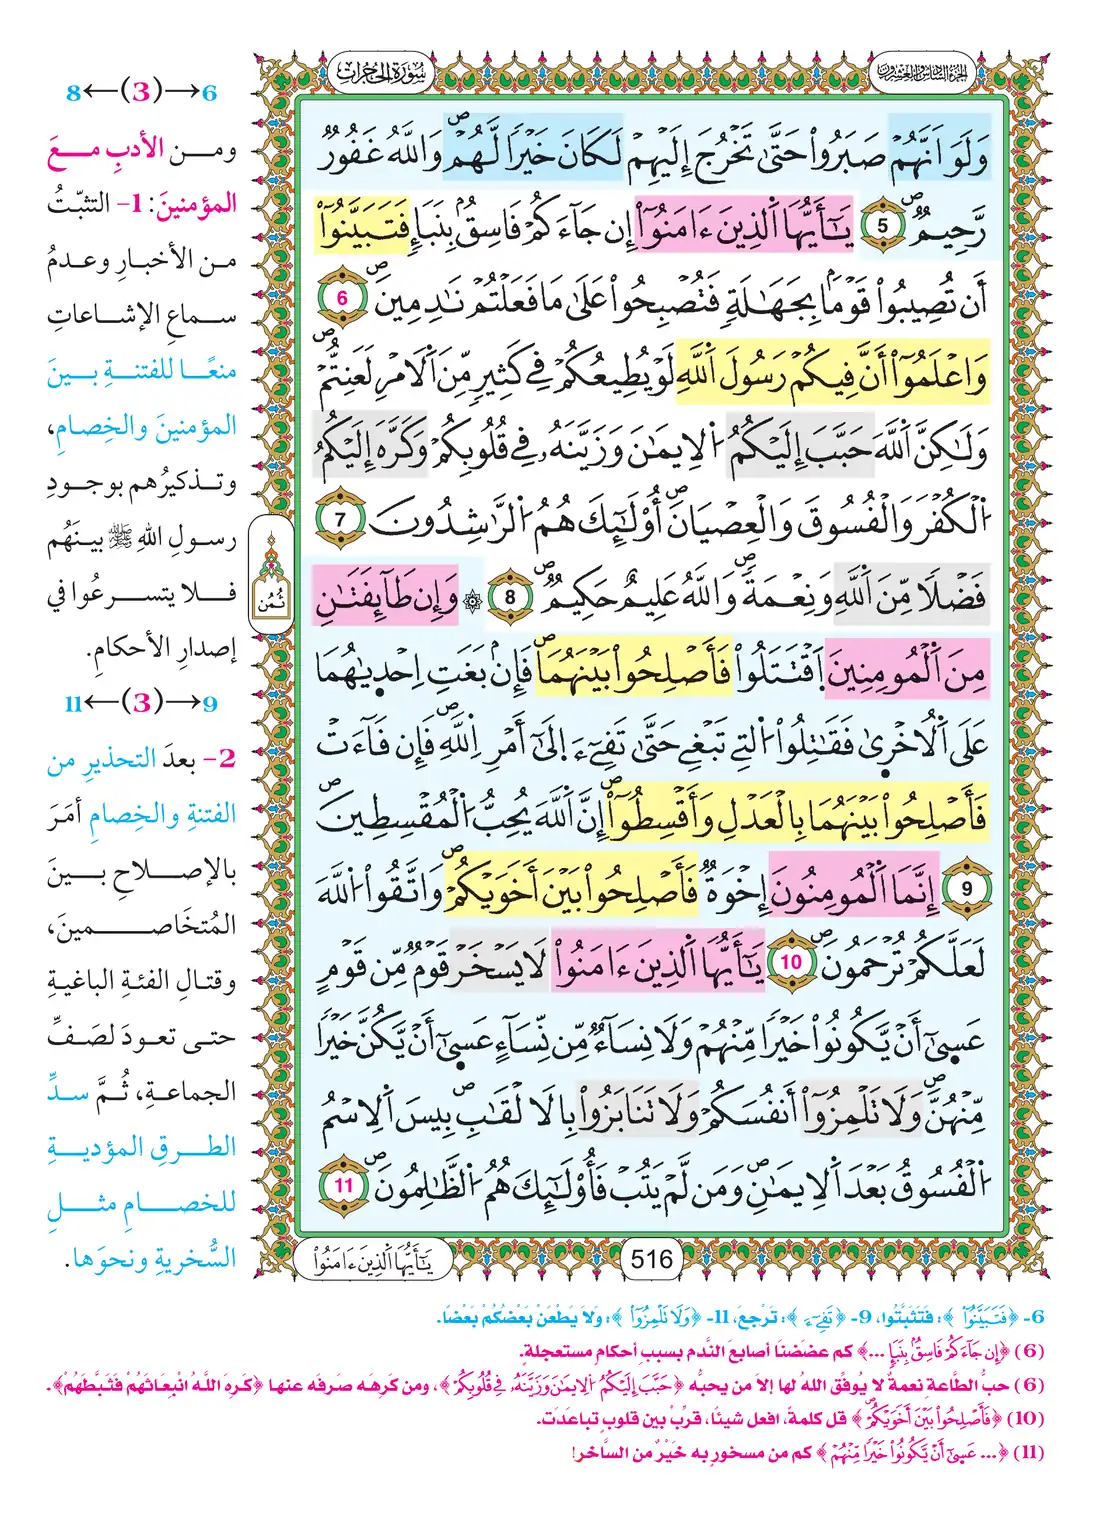 سُورَةُ الحُجُرَاتِ
الجزء السادس والعشرون
وَلَوَ اَنَّهُمْ صَبَرُواْ حَتَّىٰ تَخْرُجَ إِلَيْهِمْ لَكَانَ خَيْراٗ لَّهُمْۖ وَاللَّهُ غَفُورٞ
رَّحِيمٞۖ 5 يَٰٓأَيُّهَا اَلَّذِينَ ءَامَنُوٓاْ إِن جَآءَكُمْ فَاسِقُۢ بِنَبَإٖ فَتَبَيَّنُوٓاْ
أَن تُصِيبُواْ قَوْماَۢ بِجَهَٰلَةٖ فَتُصْبِحُواْ عَلَىٰ مَا فَعَلْتُمْ نَٰدِمِينَۖ 6
وَاعْلَمُوٓاْ أَنَّ فِيكُمْ رَسُولَ اَللَّهِ لَوْ يُطِيعُكُمْ فِي كَثِيرٖ مِّنَ اَلَامْرِ لَعَنِتُّمْۖ
وَلَٰكِنَّ اَللَّهَ حَبَّبَ إِلَيْكُمُ اُلِايمَٰنَ وَزَيَّنَهُۥ فِي قُلُوبِكُمْ وَكَرَّهَ إِلَيْكُمُ
اُلْكُفْرَ وَالْفُسُوقَ وَالْعِصْيَانَۖ أُوْلَٰٓئِكَ هُمُ اُلرَّٰشِدُونَ 7
فَضْلاٗ مِّنَ اَللَّهِ وَنِعْمَةٗۖ وَاللَّهُ عَلِيمٌ حَكِيمٞۖ 8 ۞ وَإِن طَآئِفَتَٰنِ
مِنَ اَلْمُومِنِينَ اَقْتَتَلُواْ فَأَصْلِحُواْ بَيْنَهُمَاۖ فَإِنۢ بَغَتِ اِحْدَىٰهُمَا
عَلَى اَلُاخْرَىٰ فَقَٰتِلُواْ اُلتِے تَبْغِي حَتَّىٰ تَفِيٓءَ اِلَىٰٓ أَمْرِ اِللَّهِۖ فَإِن فَآءَتْ
فَأَصْلِحُواْ بَيْنَهُمَا بِالْعَدْلِ وَأَقْسِطُوٓاْۖ إِنَّ اَللَّهَ يُحِبُّ اُلْمُقْسِطِينَۖ
9 إِنَّمَا اَلْمُومِنُونَ إِخْوَةٞ فَأَصْلِحُواْ بَيْنَ أَخَوَيْكُمْۖ وَاتَّقُواْ اُللَّهَ
لَعَلَّكُمْ تُرْحَمُونَۖ 10 يَٰٓأَيُّهَا اَلَّذِينَ ءَامَنُواْ لَا يَسْخَرْ قَوْمٞ مِّن قَوْمٍ
عَسَىٰٓ أَنْ يَّكُونُواْ خَيْراٗ مِّنْهُمْ وَلَا نِسَآءٞ مِّن نِّسَآءٍ عَسَىٰٓ أَنْ يَّكُنَّ خَيْراٗ
مِّنْهُنَّۖ وَلَا تَلْمِزُوٓاْ أَنفُسَكُمْ وَلَا تَنَابَزُواْ بِالَالْقَٰبِۖ بِيسَ اَلِاسْمُ
اُلْفُسُوقُ بَعْدَ اَلِايمَٰنِۖ وَمَن لَّمْ يَتُبْ فَأُوْلَٰٓئِكَ هُمُ اُلظَّٰلِمُونَۖ 11
ثُمُن
516
يَٰٓأَيُّهَا اَلَّذِينَ ءَامَنُواْ
6→(3)←8
ومن الأدبِ معَ
المؤمنينَ: 1- التثبّتُ
من الأخبارِ وعدمُ
سماعِ الإشاعاتِ
منعًا للفتنةِ بينَ
المؤمنينَ والخِصامِ،
وتذكيرُهم بوجودِ
رسولِ اللهِ ﷺ بينَهُم
فلا يتسرعُوا في
إصدارِ الأحكامِ.
9→(3)←11
2- بعدَ التحذيرِ من
الفتنةِ والخِصامِ أمَرَ
بالإصلاحِ بينَ
المُتخَاصمينَ،
وقتالِ الفئةِ الباغيةِ
حتى تعودَ لصَفِّ
الجماعةِ، ثُمَّ سدِّ
الطرقِ المؤديةِ
للخصامِ مثلِ
السُّخريةِ ونحوَها.
6- ﴿فَتَبَيَّنُوٓاْ﴾: فَتَثَبَّتُوا، 9- ﴿تَفِيٓءَ﴾: تَرْجِعَ، 11- ﴿وَلَا تَلْمِزُوٓاْ﴾: وَلَا يَطْعَنْ بَعْضُكُمْ بَعْضًا.
(6) ﴿إِن جَآءَكُمْ فَاسِقُۢ بِنَبَإٖ ...﴾ كم عضضنَا أصابعَ النَّدم بسببِ أحكامٍ مستعجلةٍ.
(6) حبُّ الطَّاعةِ نعمةٌ لا يُوفِّق اللهُ لها إلا من يحبُّه ﴿حَبَّبَ إِلَيْكُمُ اُلِايمَٰنَ وَزَيَّنَهُۥ فِي قُلُوبِكُمْ﴾، ومن كَرِهَه صرفَه عنها ﴿كَرِهَ اللهُ انْبِعَاثَهُمْ فَثَبَّطَهُمْ﴾.
(10) ﴿فَأَصْلِحُواْ بَيْنَ أَخَوَيْكُمْۖ﴾ قل كلمةً، افعل شيئًا، قرِّبْ بين قلوبٍ تباعَدَت.
(11) ﴿... عَسَىٰٓ أَنْ يَّكُونُواْ خَيْراٗ مِّنْهُمْ﴾ كم من مسخورٍ به خَيْرٌ من السَّاخر!